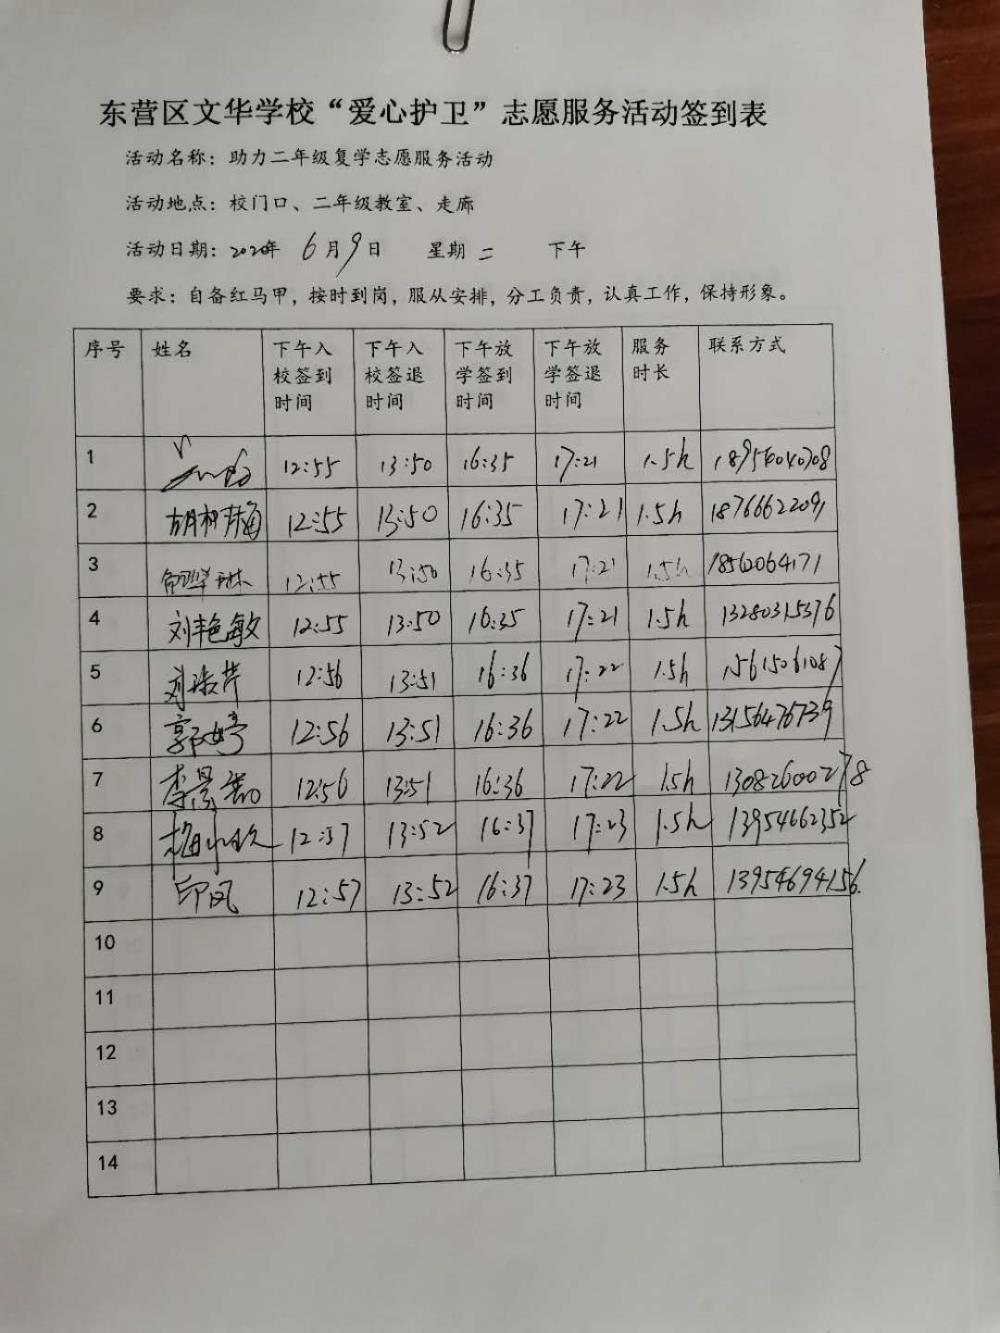 东营区文华学校“爱心护卫”志愿服务活动签到表
活动名称：助力二年级复学志愿服务活动
活动地点：校门口、二年级教室、走廊
活动日期：2020年 6月9日 星期二 下午
要求：自备红马甲，按时到岗，服从安排，分工负责，认真工作，保持形象。
序号 姓名 下午入校签到时间 下午入校签退时间 下午放学签到时间 下午放学签退时间 服务时长 联系方式
1 12:55 13:50 16:35 17:21 1.5h 18954040708
2 12:55 13:50 16:35 17:21 1.5h 18766622091
3 12:55 13:50 16:35 17:21 1.5h 18562064171
4 刘艳敏 12:55 13:50 16:35 17:21 1.5h 13280315376
5 12:56 13:51 16:36 17:22 1.5h 15615061087
6 郭婷 12:56 13:51 16:36 17:22 1.5h 13156476739
7 12:56 13:51 16:36 17:22 1.5h 13082600278
8 12:57 13:52 16:37 17:23 1.5h 13954662352
9 印凤 12:57 13:52 16:37 17:23 1.5h 13954694156.
10
11
12
13
14